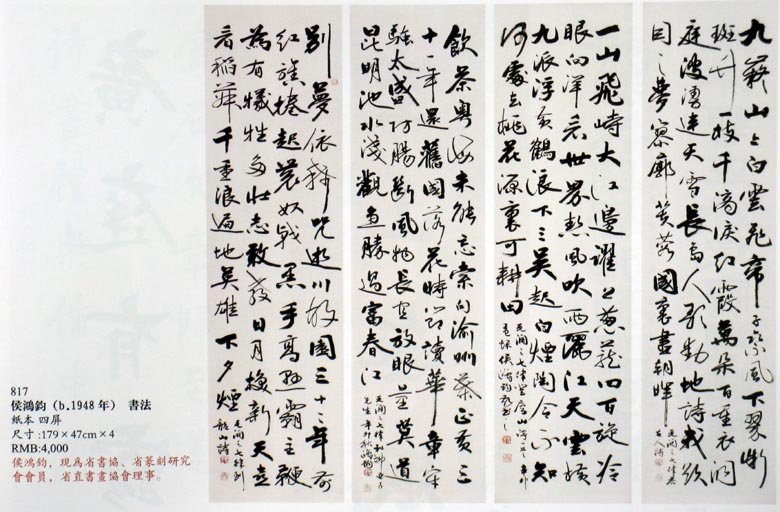 九嶷山上白雲飛帝子乘風下翠微
斑竹一枝千滴淚紅霞萬朵百重衣洞
庭波湧連天雪長島人歌動地詩我欲
因之夢寥廓芙蓉國裏盡朝暉
毛潤之七律答
友人詩
一山飛峙大江邊躍上蔥蘢四百旋冷
眼向洋看世界熱風吹雨灑江天雲橫
九派浮黃鶴浪下三吳起白煙陶令不知
何處去桃花源裏可耕田
毛潤之七律登廬山詩 辛卯
侯鴻鈞
飲茶粵海未能忘索句渝州葉正黃三
十一年還舊國落花時節讀華章牢
騷太盛防腸斷風物長宜放眼量莫道
昆明池水淺觀魚勝過富春江
毛潤之七律和柳亞子
先生 辛卯 鴻鈞
別夢依稀咒逝川故園三十二年前
紅旗捲起農奴戟黑手高懸霸主鞭
為有犧牲多壯志敢教日月換新天喜
看稻菽千重浪遍地英雄下夕煙
毛潤之七律到
韶山詩
817
侯鴻鈞(b.1948 年) 書法
紙本 四屏
尺寸:179×47cm×4
RMB:4,000
侯鴻鈞，現爲省書協、省篆刻研究
會會員，省直書畫協會理事。